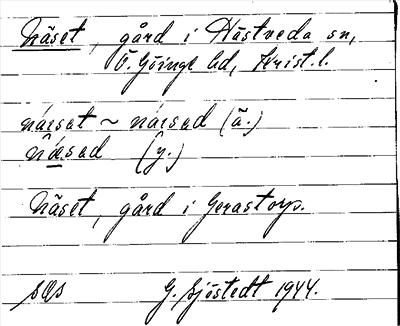 Näset, gård i Hästveda sn,
Ö. Göinge hd, Krist. l.
náɪsət ~ náɪsəd (ä.)
nǽsəd (y.)
Näset, gård i Gerastorp.
SOs G. Sjöstedt 1944.